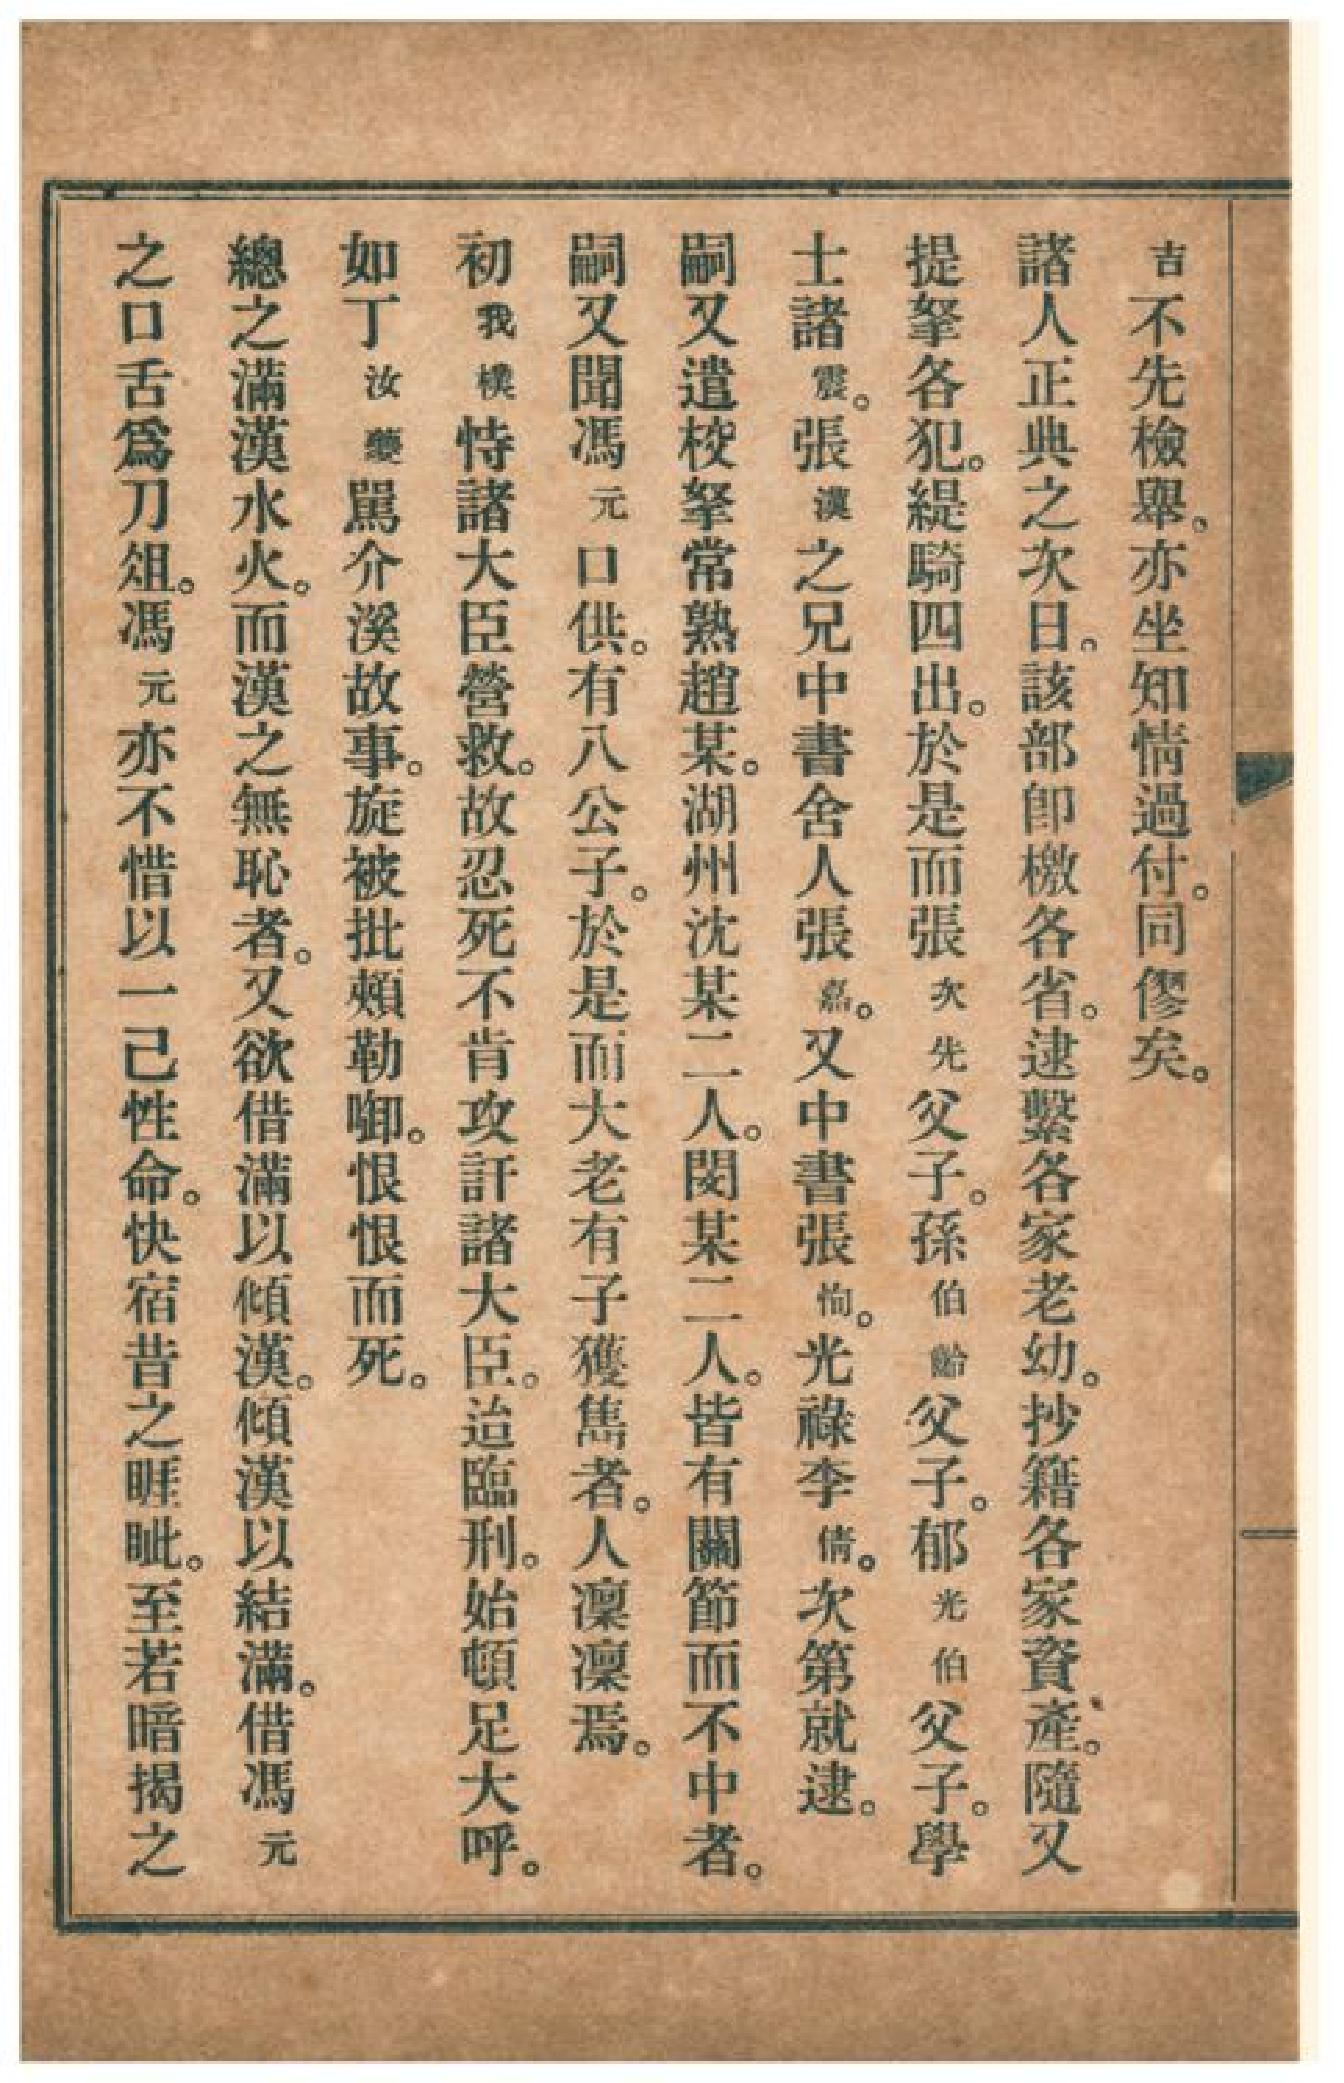 吉不先檢舉。亦坐知情過付。同僇矣。
諸人正典之次日。該部卽檄各省。逮繫各家老幼。抄籍各家資產。隨又
提拏各犯。緹騎四出。於是而張次先父子。孫伯齡父子。郁光伯父子。學
士諸震。張漢之兄中書舍人張嘉。又中書張恂。光祿李倩。次第就逮。
嗣又遣校拏常熟趙某。湖州沈某二人。閔某二人。皆有關節而不中者。
嗣又聞馮元口供。有八公子。於是而大老有子獲雋者。人凜凜焉。
初我樸恃諸大臣營救。故忍死不肯攻訐諸大臣。迨臨刑。始頓足大呼。
如丁汝夔駡介溪故事。旋被批頰勒啣。恨恨而死。
總之滿漢水火。而漢之無恥者。又欲借滿以傾漢。傾漢以結滿。借馮元
之口舌爲刀俎。馮元亦不惜以一己性命。快宿昔之睚眦。至若暗揭之